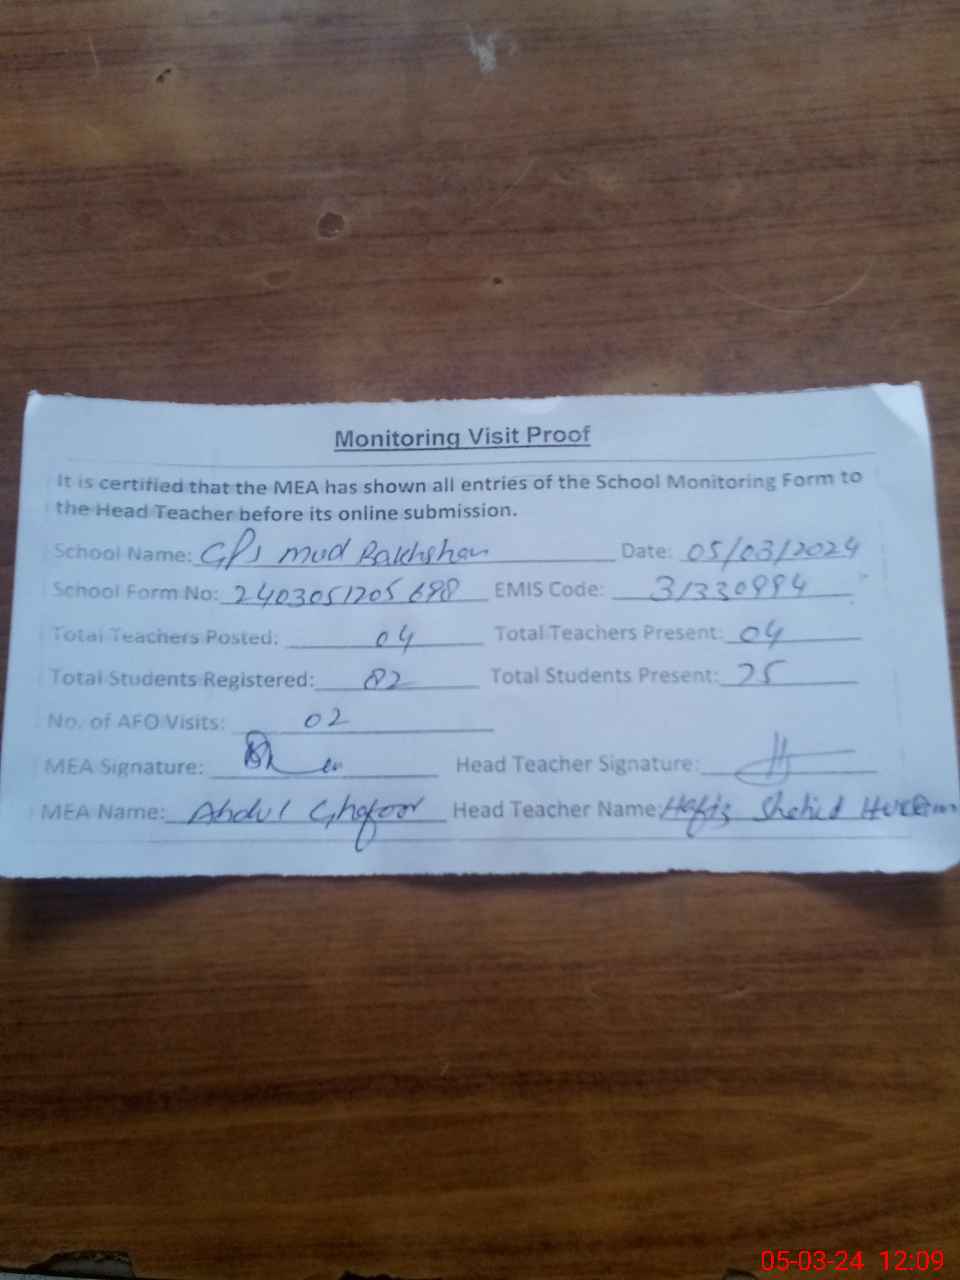 Monitoring Visit Proof
It is certified that the MEA has shown all entries of the School Monitoring Form to
the Head Teacher before its online submission.
School Name: GPS mud Bakhshan Date: 05/03/2024
School Form No: 2403051205698 EMIS Code: 31330994
Total Teachers Posted: 04 Total Teachers Present: 04
Total Students Registered: 82 Total Students Present: 25
No. of AEO Visits: 02
MEA Signature: Head Teacher Signature:
MEA Name: Abdul Ghafoor Head Teacher Name: Hafiz Shahid
05-03-24 12:09